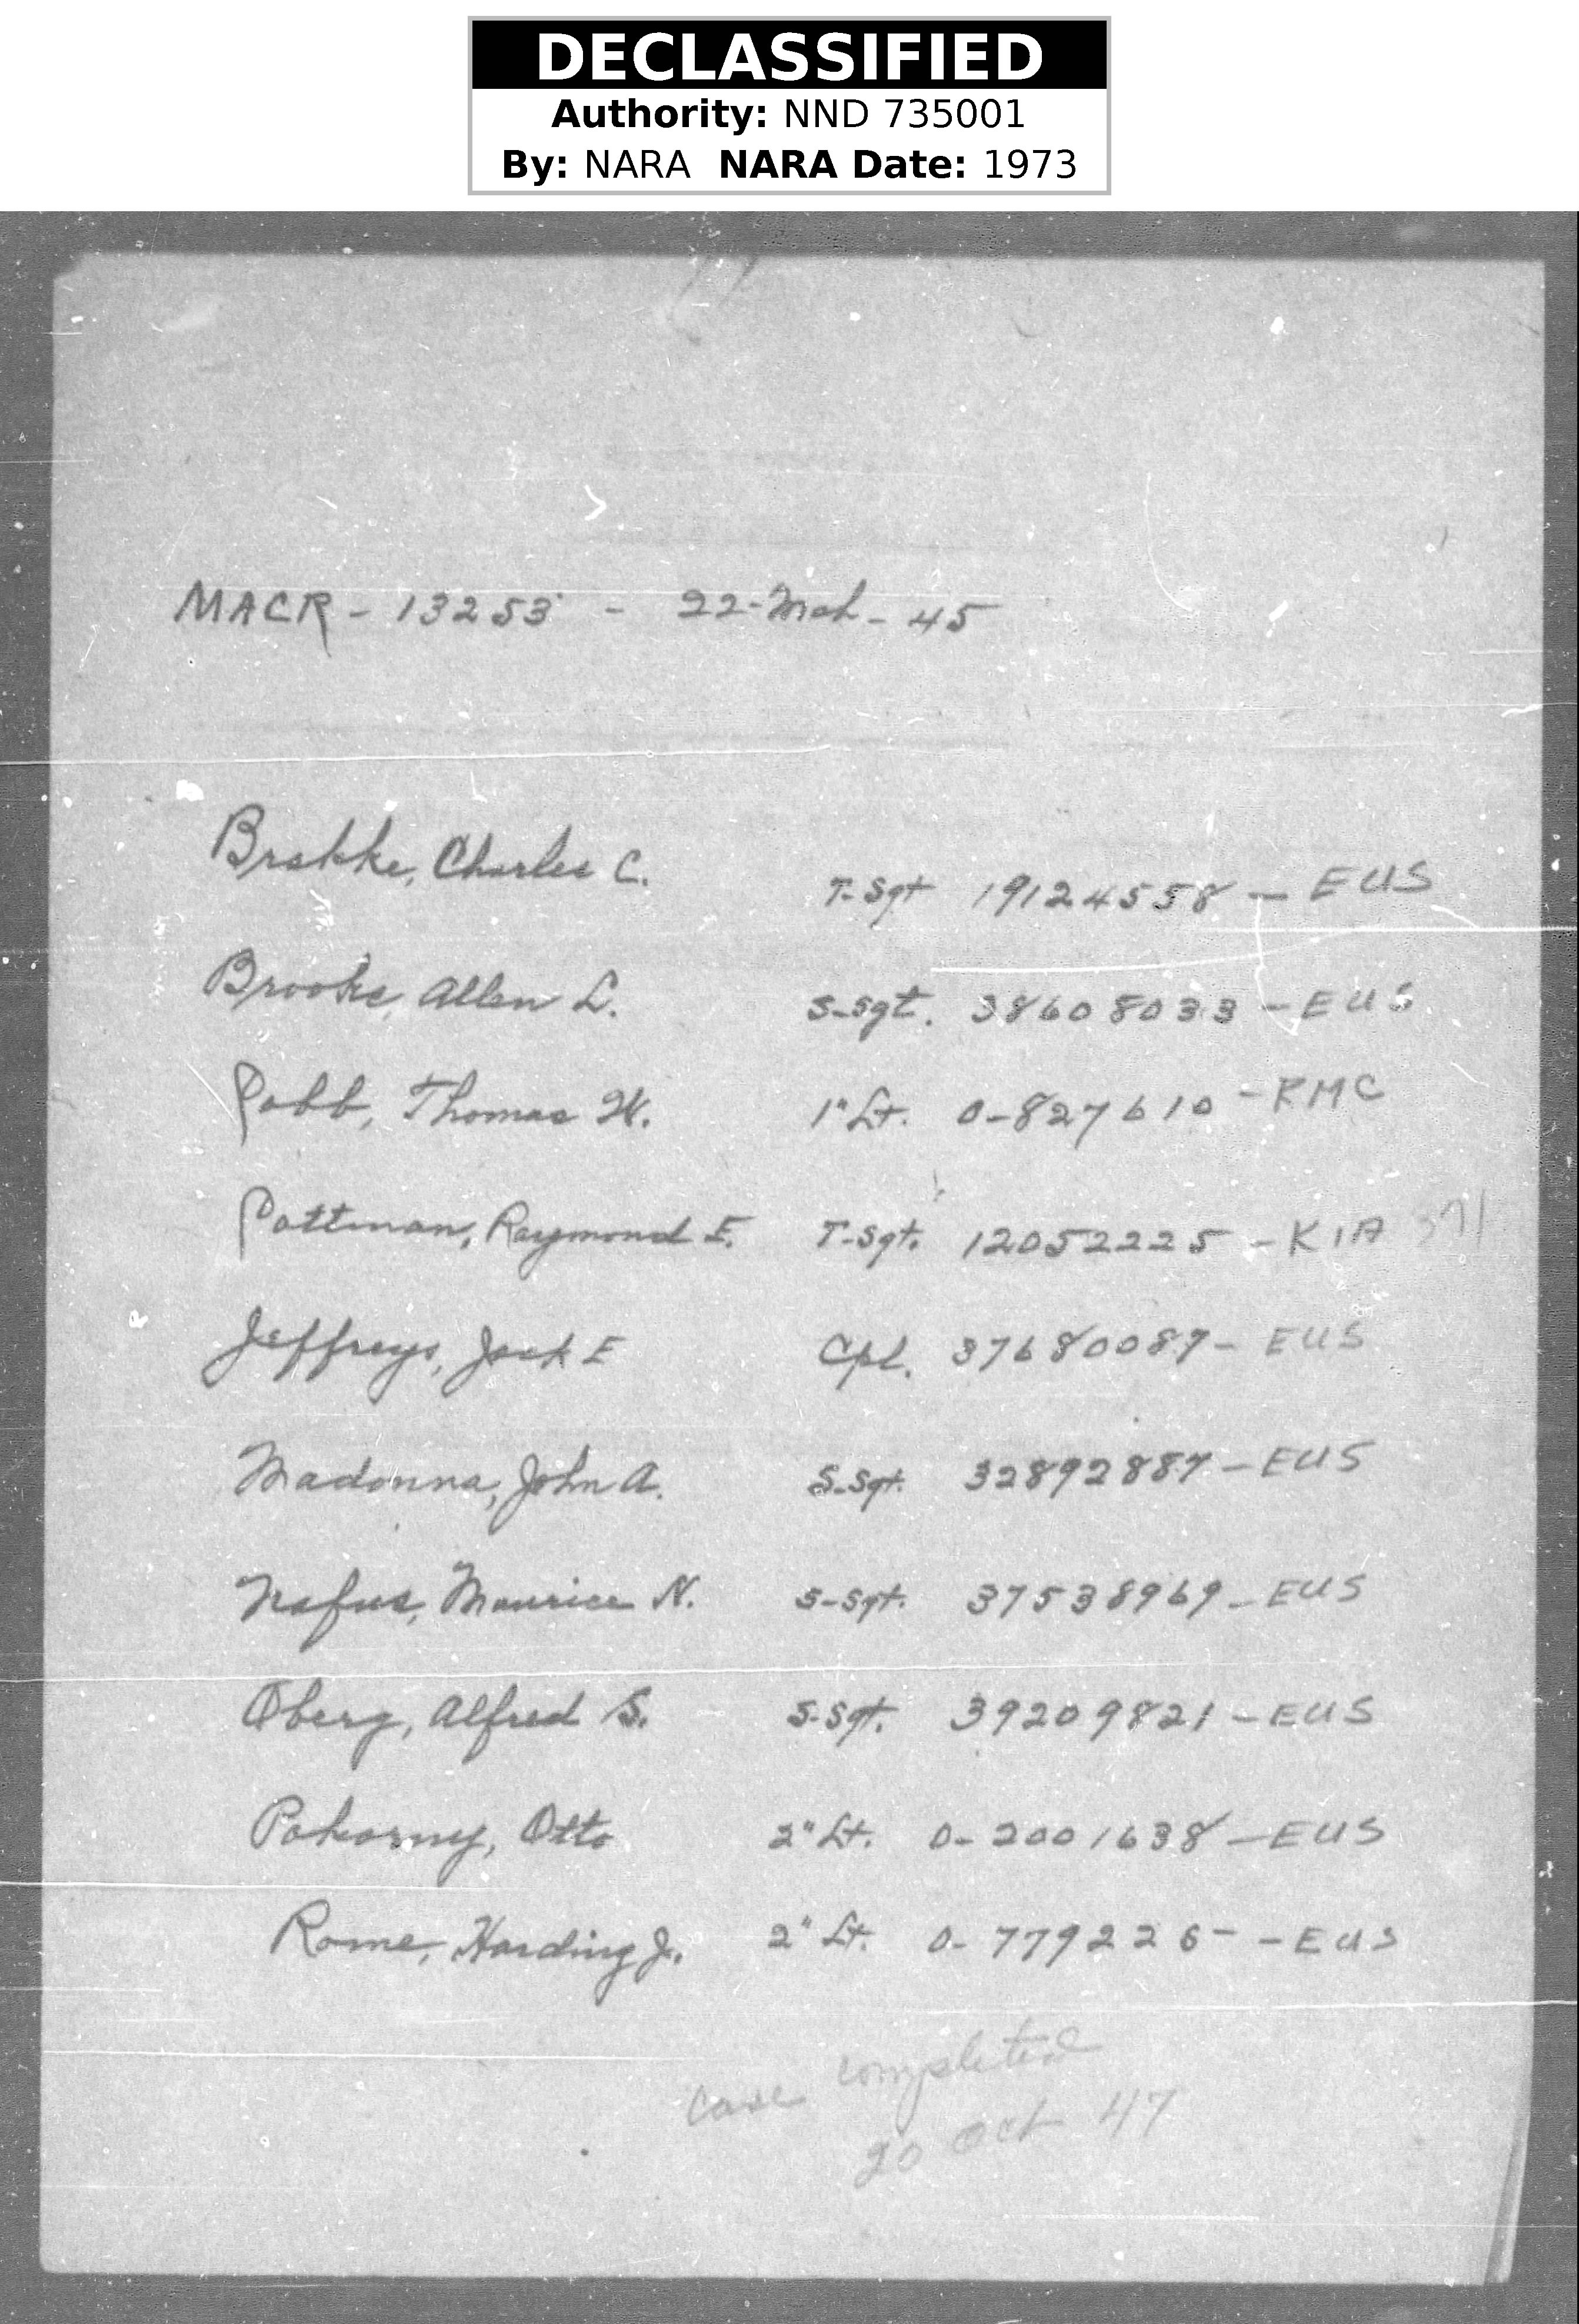 DECLASSIFIED
Authority: NND 735001
By: NARA NARA Date: 1973
MACR - 13253 - 22-Mch-45
Brakke, Charles C. T-Sgt 19124558 - EUS
Brooks, Allen L. S-Sgt. 38608033 - EUS
Cobb, Thomas W. 1" Lt. O-827610 - RMC
Cottman, Raymond E. T-Sgt. 12052225 - KIA
Jeffreys, Jack E Cpl. 37680087 - EUS
Madonna, John A. S-Sgt. 32892887 - EUS
Nafus, Maurice N. S-Sgt. 37538969 - EUS
Oberg, Alfred S. S-Sgt. 39209821 - EUS
Pokorny, Otto 2" Lt. O-2001638 - EUS
Rome, Harding J. 2" Lt. O-779226 - - EUS
Case completed
20 Oct 47